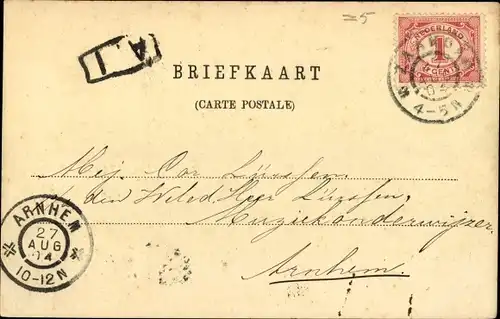 =5
NEDERLAND
1
CENT
4-5N
BRIEFKAART
(CARTE POSTALE)
Mej. Cor Lüssen.
den Weled Heer Lüssen,
Muziekonderwijzer
Arnhem.
ARNHEM
27
AUG
04
10-12N